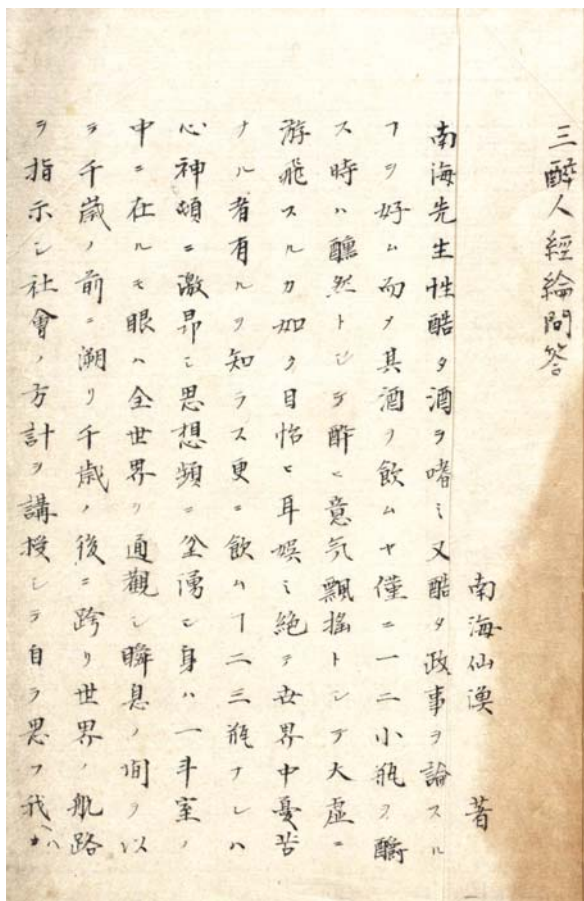 三醉人經綸問答
南海仙漁 著
南海先生性酷タ酒ヲ嗜ミ又酷タ政事ヲ論スル
ヿヲ好ム而〆其酒ヲ飲ムヤ僅ニ一二小瓶ヲ釂
ス時ハ醺然トシテ酔ヒ意気飄搖トシテ大虚ニ
游飛スルカ如ク目怡ヒ耳娯ミ絶テ世界中憂苦
ナル者有ルヲ知ラス更ニ飲ムヿ二三瓶ナレハ
心神頓ニ激昂シ思想頻ニ坌湧シ身ハ一斗室ノ
中ニ在ルモ眼ハ全世界ヲ通觀シ瞬息ノ間ヲ以
テ千歳ノ前ニ溯リ千歳ノ後ニ跨リ世界ノ航路
ヲ指示シ社會ノ方計ヲ講授シテ自ラ思フ我ハ